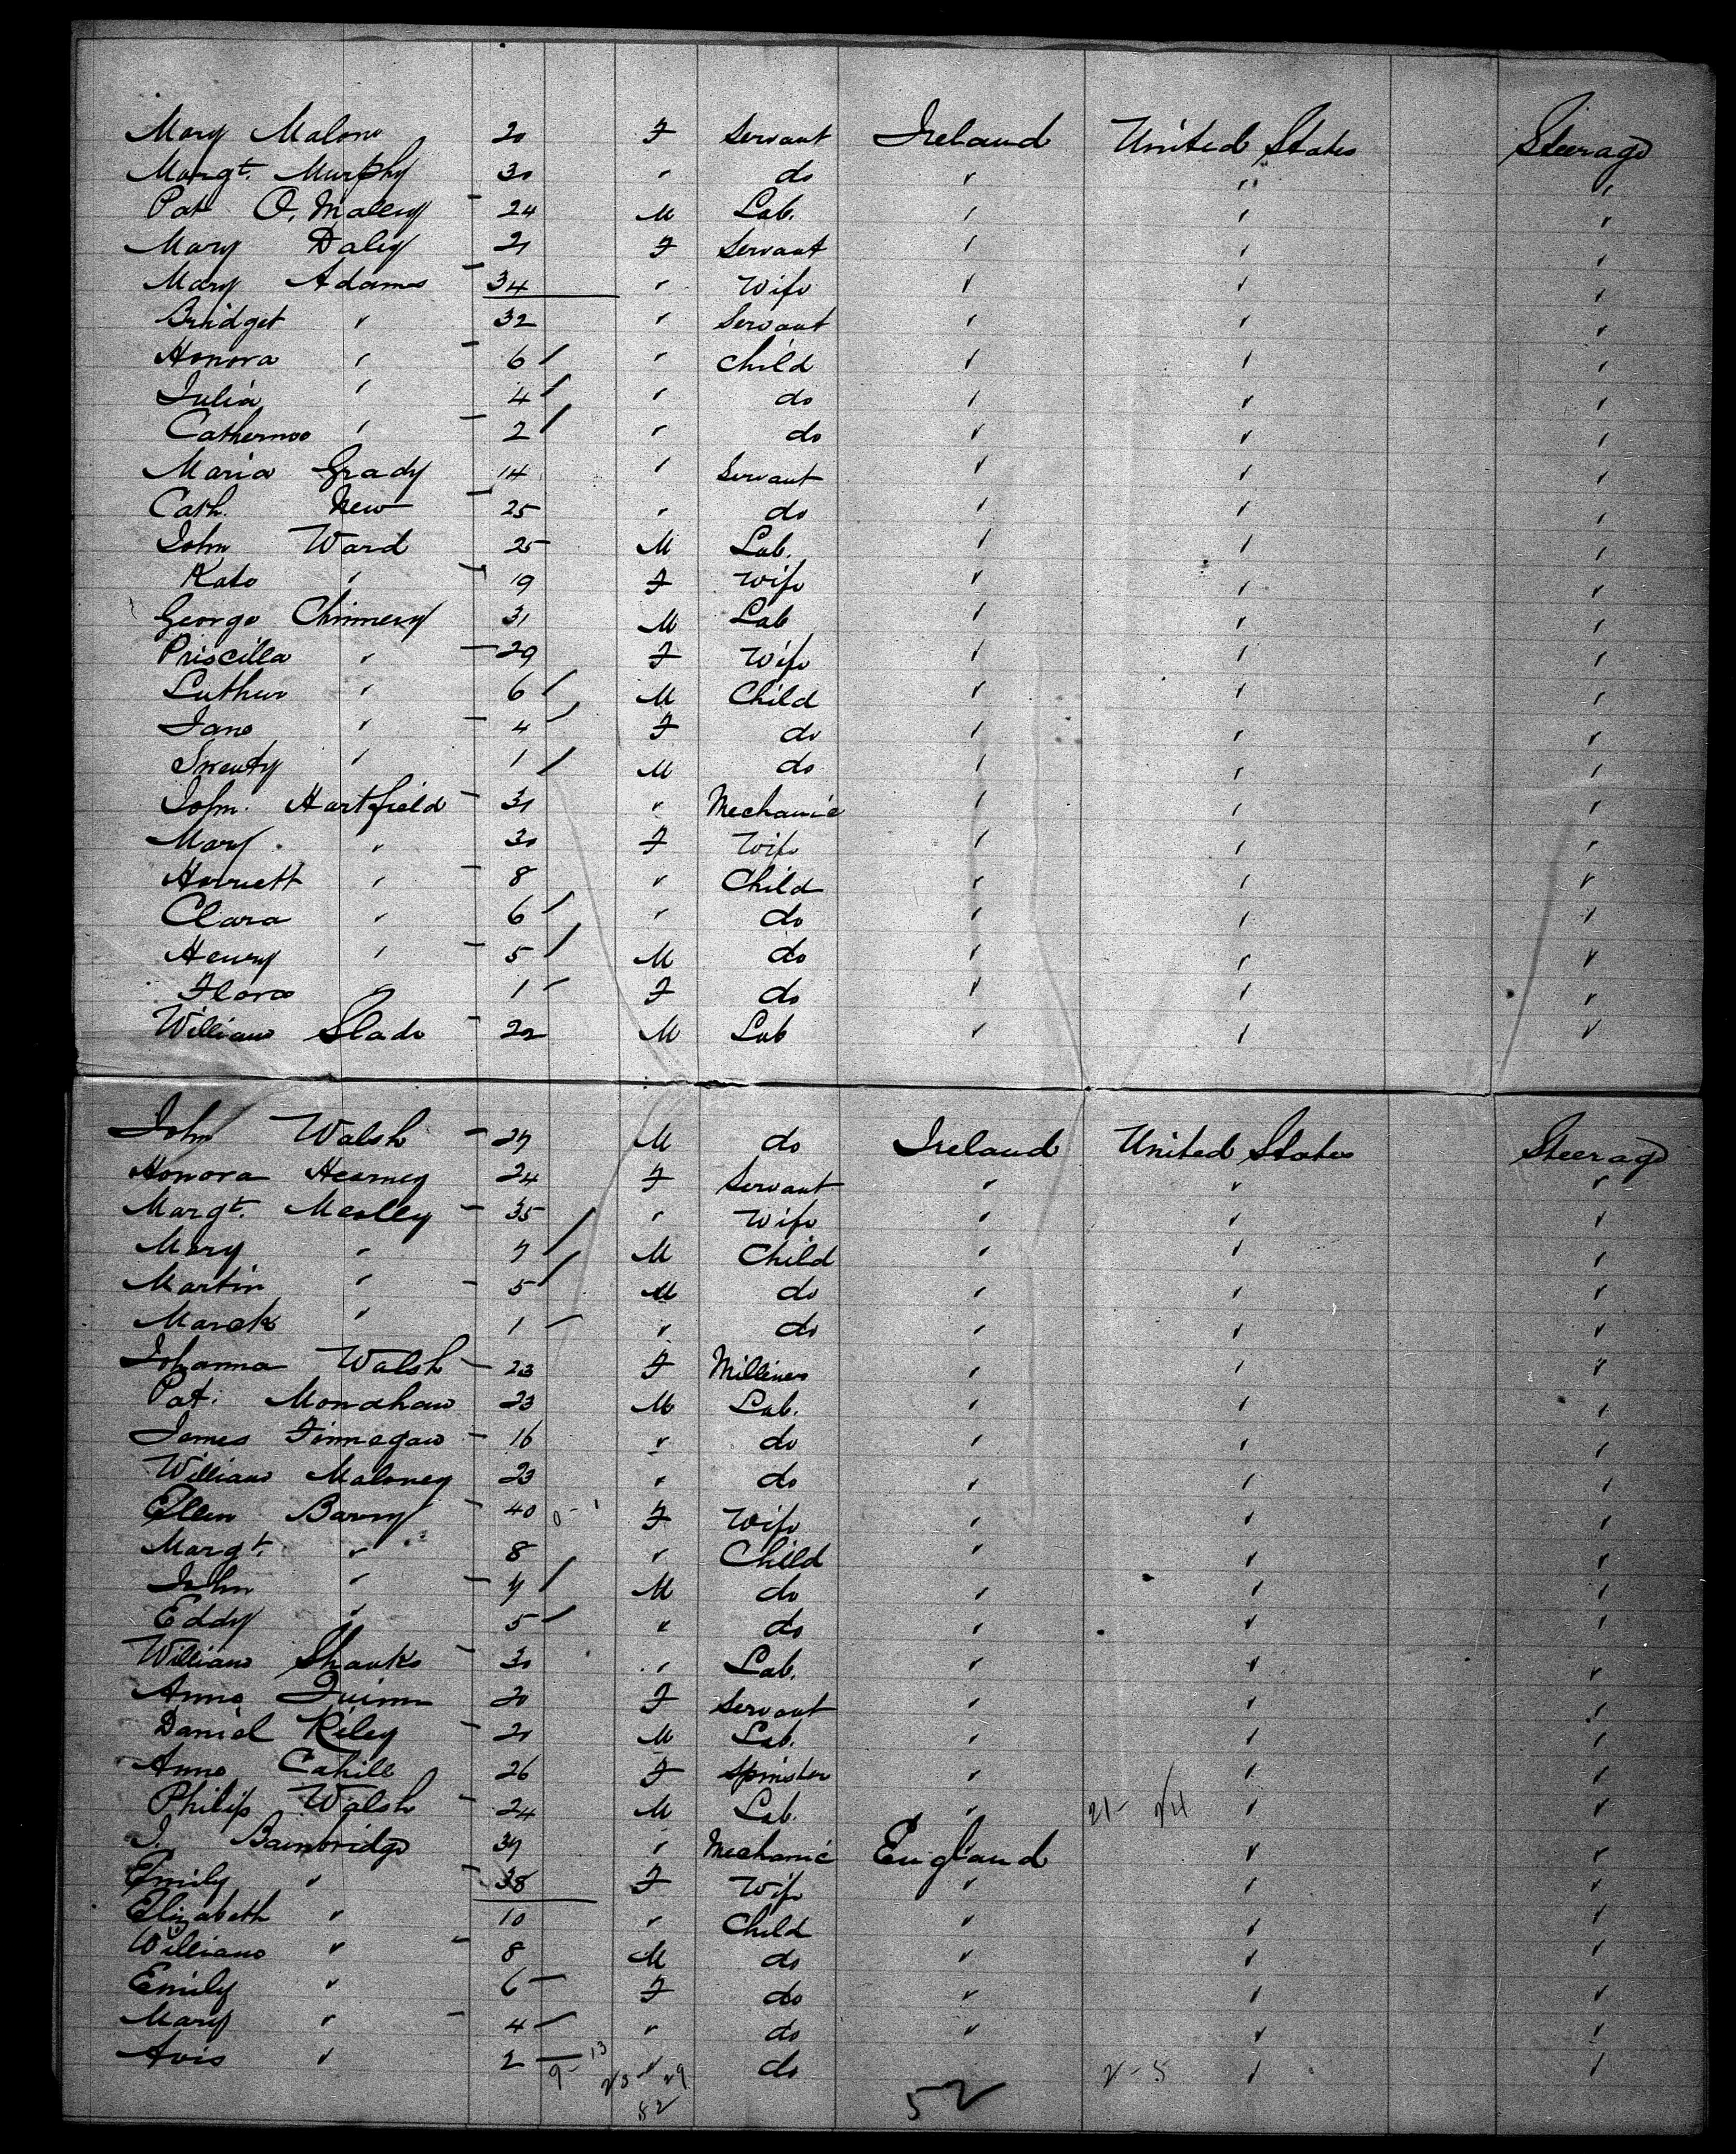 Mary Malone 20 F Servant Ireland United States Steerage
Margt. Murphy 30 " do " " "
Pat O, Malley 24 M Lab. " " "
Mary Daley 21 F Servant " " "
Mary Adams 34 " Wife " " "
Bridget " 32 " Servant " " "
Honora " 6 " Child " " "
Julia " 4 " do " " "
Catherine " 2 " do " " "
Maria Grady 14 " Servant " " "
Cath. New 25 " do " " "
John Ward 25 M Lab. " " "
Kate " 19 F Wife " " "
George Chinnery 31 M Lab " " "
Priscilla " 29 F Wife " " "
Luther " 6 M Child " " "
Jane " 4 F do " " "
" 1 M do " " "
John Hartfield 31 " Mechanic " " "
Mary " 30 F Wife " " "
Harriett " 8 " Child " " "
Clara " 6 " do " " "
Henry " 5 M do " " "
Flora " 1 F do " " "
William Slade 22 M Lab " " "
John Walsh 27 M do Ireland United States Steerage
Honora Hearney 24 F Servant " " "
Margt. Mealley 35 " Wife " " "
Mary " 7 M Child " " "
Martin " 5 M do " " "
Marck " 1 " do " " "
Johanna Walsh 23 F Milliner " " "
Pat. Monahan 23 M Lab. " " "
James Finnegan 16 " do " " "
William Maloney 23 " do " " "
Ellen Barry 40 F Wife " " "
Margt. " 8 " Child " " "
John " 7 M do " " "
Eddy " 5 " do " " "
William Shanks 30 " Lab. " " "
Anne Quinn 20 F Servant " " "
Daniel Riley 21 M Lab. " " "
Anne Cahill 26 F Spinster " " "
Philip Walsh 24 M Lab. " 21- 24 " "
J. Bainbridge 37 " Mechanic England " "
Emily " 38 F Wife " " "
Elizabeth " 10 " Child " " "
William " 8 M do " " "
Emily " 6 F do " " "
Mary " 4 " do " " "
Avis " 2 " do 2-5 " "
9-13 23-29
52 52